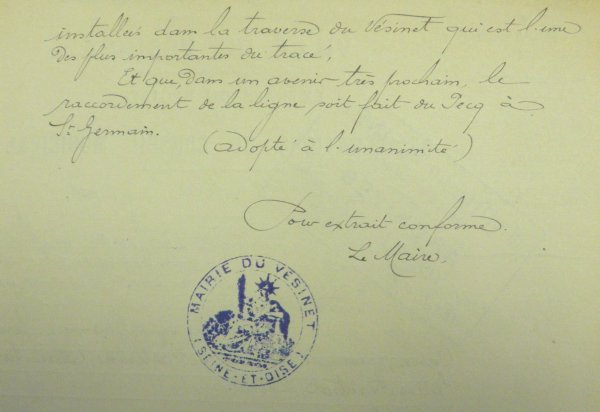 installées dans la traverse du Vésinet qui est l'une
des plus importantes du tracé,
Et que, dans un avenir très prochain, le
raccordement de la ligne soit fait du Pecq à
St Germain.
(adopté à l'unanimité)
Pour extrait conforme.
Le Maire,
MAIRIE DU VÉSINET
(SEINE-ET-OISE)